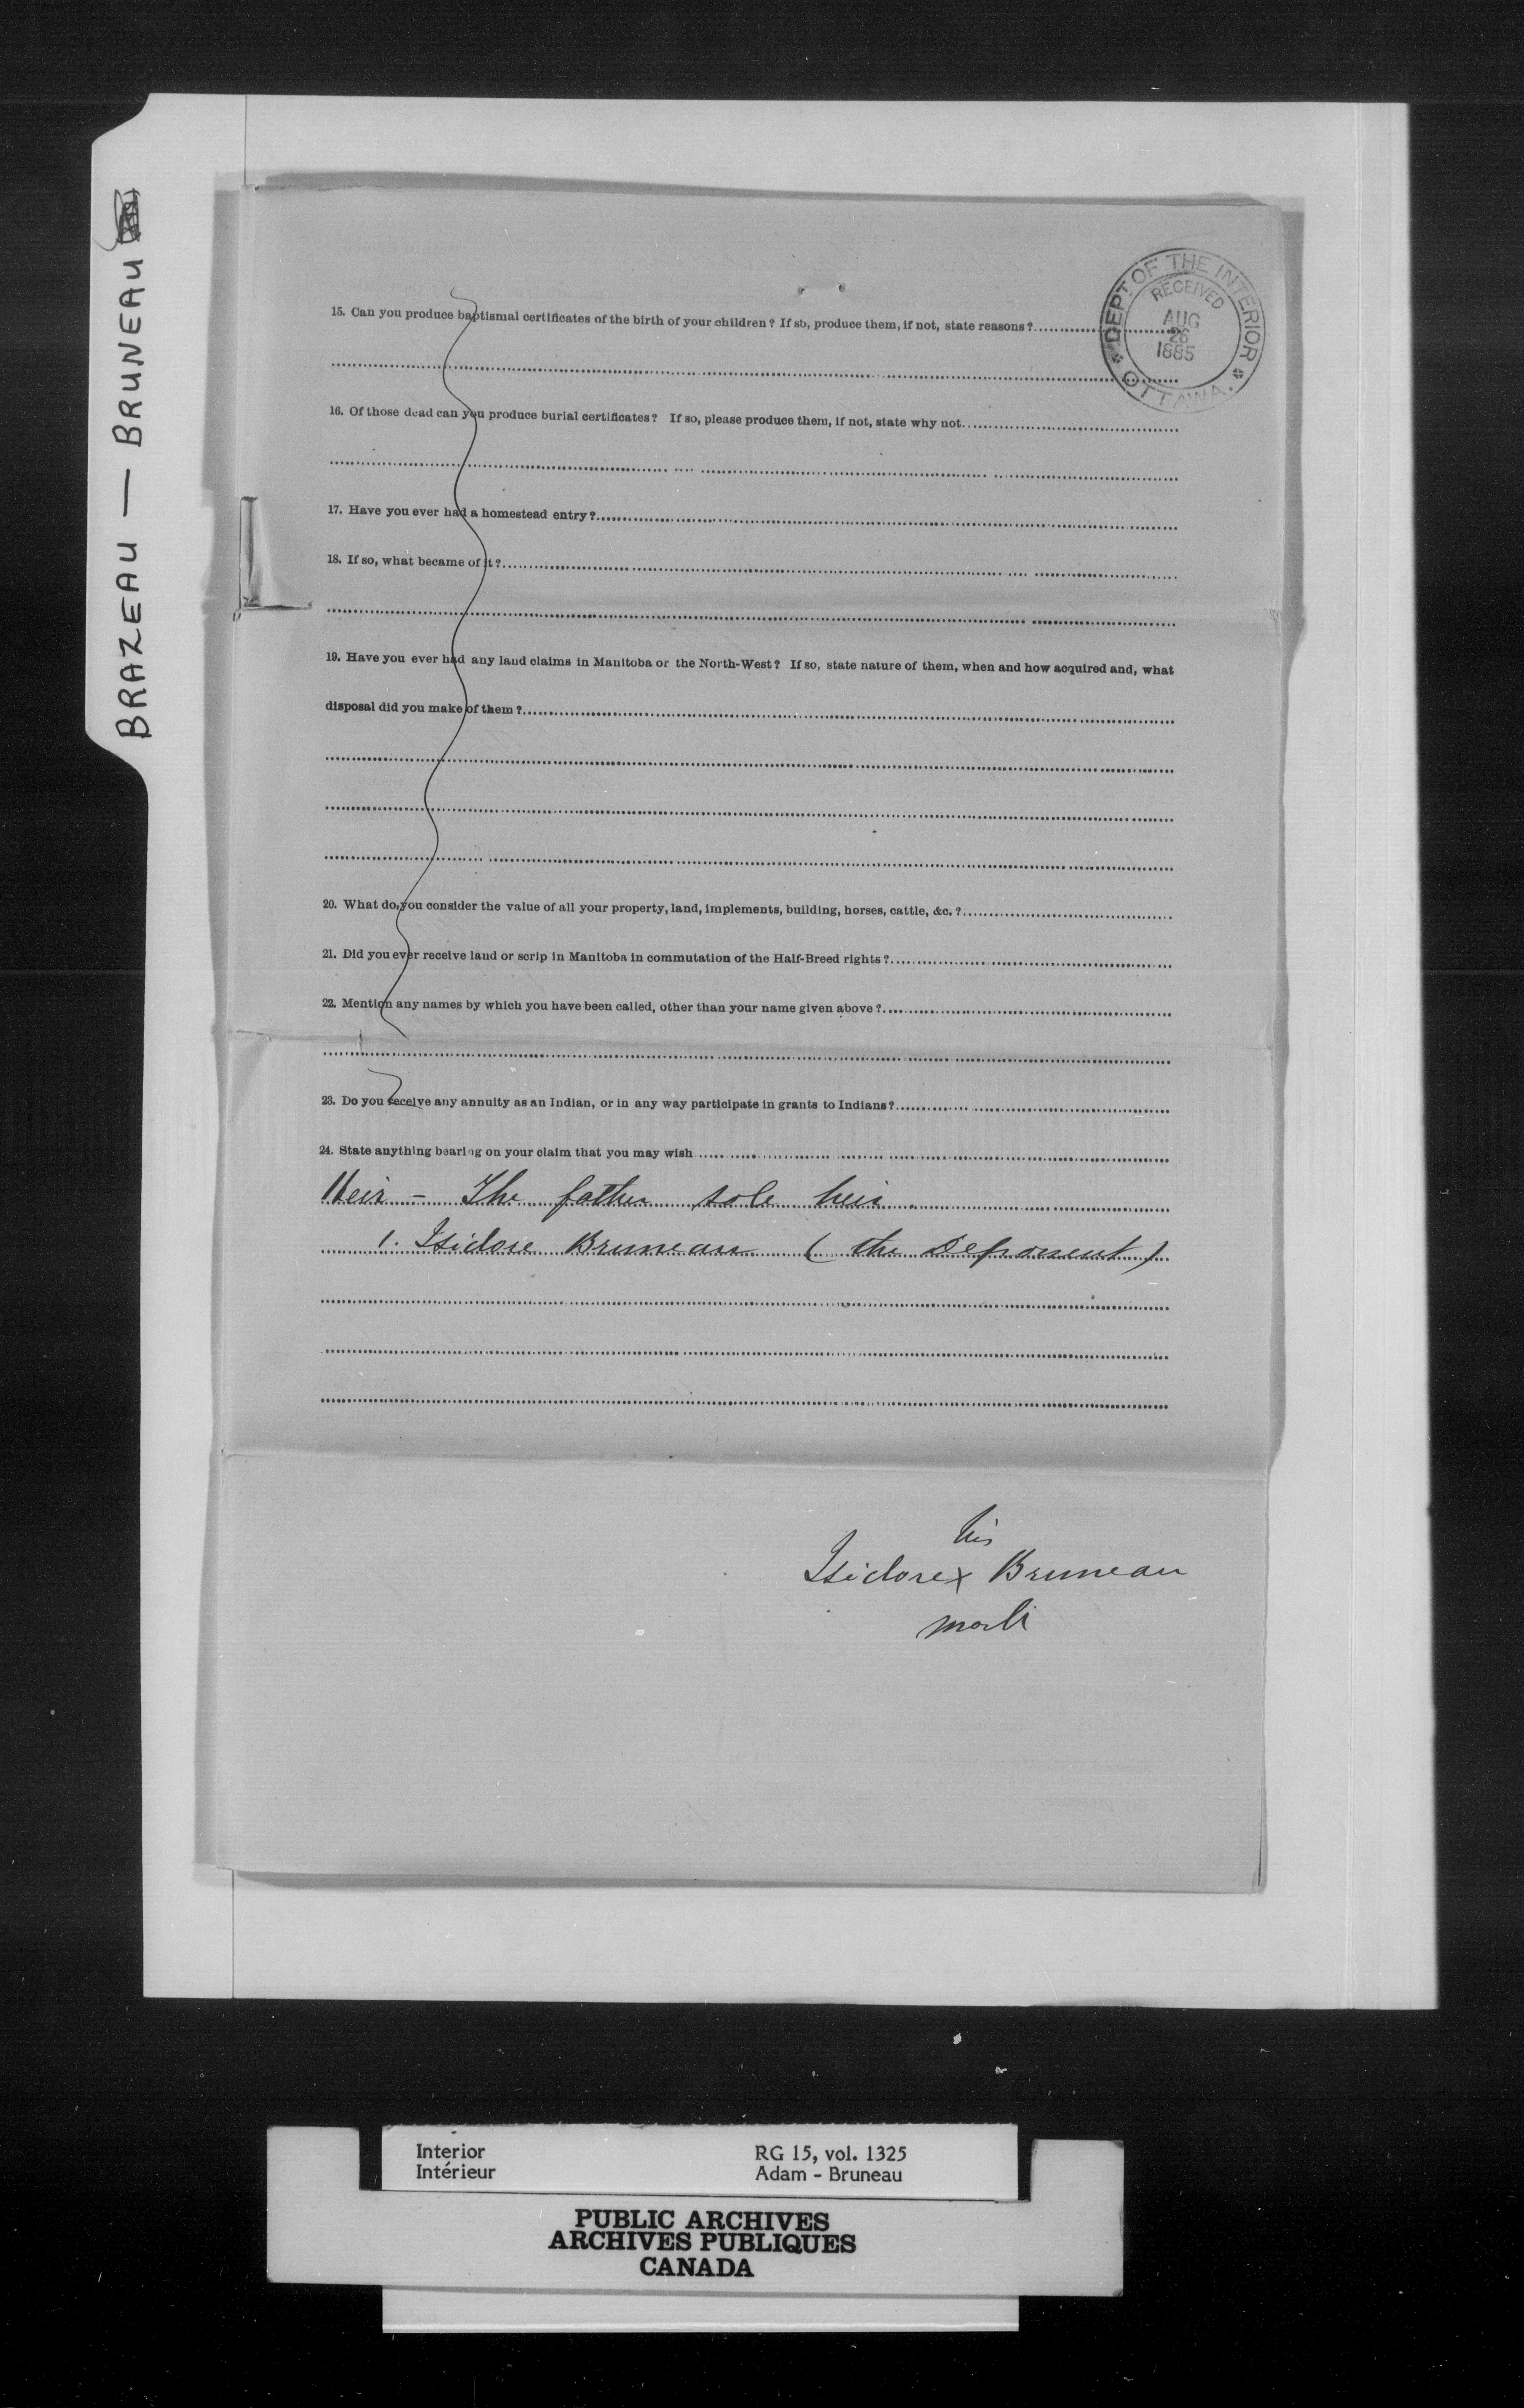 BRAZEAU — BRUNEAU
DEPT. OF THE INTERIOR
RECEIVED
AUG
26
1885
OTTAWA.
15. Can you produce baptismal certificates of the birth of your children? If so, produce them, if not, state reasons?
16. Of those dead can you produce burial certificates? If so, please produce them, if not, state why not
17. Have you ever had a homestead entry?
18. If so, what became of it?
19. Have you ever had any land claims in Manitoba or the North-West? If so, state nature of them, when and how acquired and, what
disposal did you make of them?
20. What do you consider the value of all your property, land, implements, building, horses, cattle, &c.?
21. Did you ever receive land or scrip in Manitoba in commutation of the Half-Breed rights?
22. Mention any names by which you have been called, other than your name given above?
23. Do you receive any annuity as an Indian, or in any way participate in grants to Indians?
24. State anything bearing on your claim that you may wish
Heir - The father sole heir
1. Isidore Bruneau (the Deponent)
his
Isidore x Bruneau
mark
Interior RG 15, vol. 1325
Intérieur Adam - Bruneau
PUBLIC ARCHIVES
ARCHIVES PUBLIQUES
CANADA